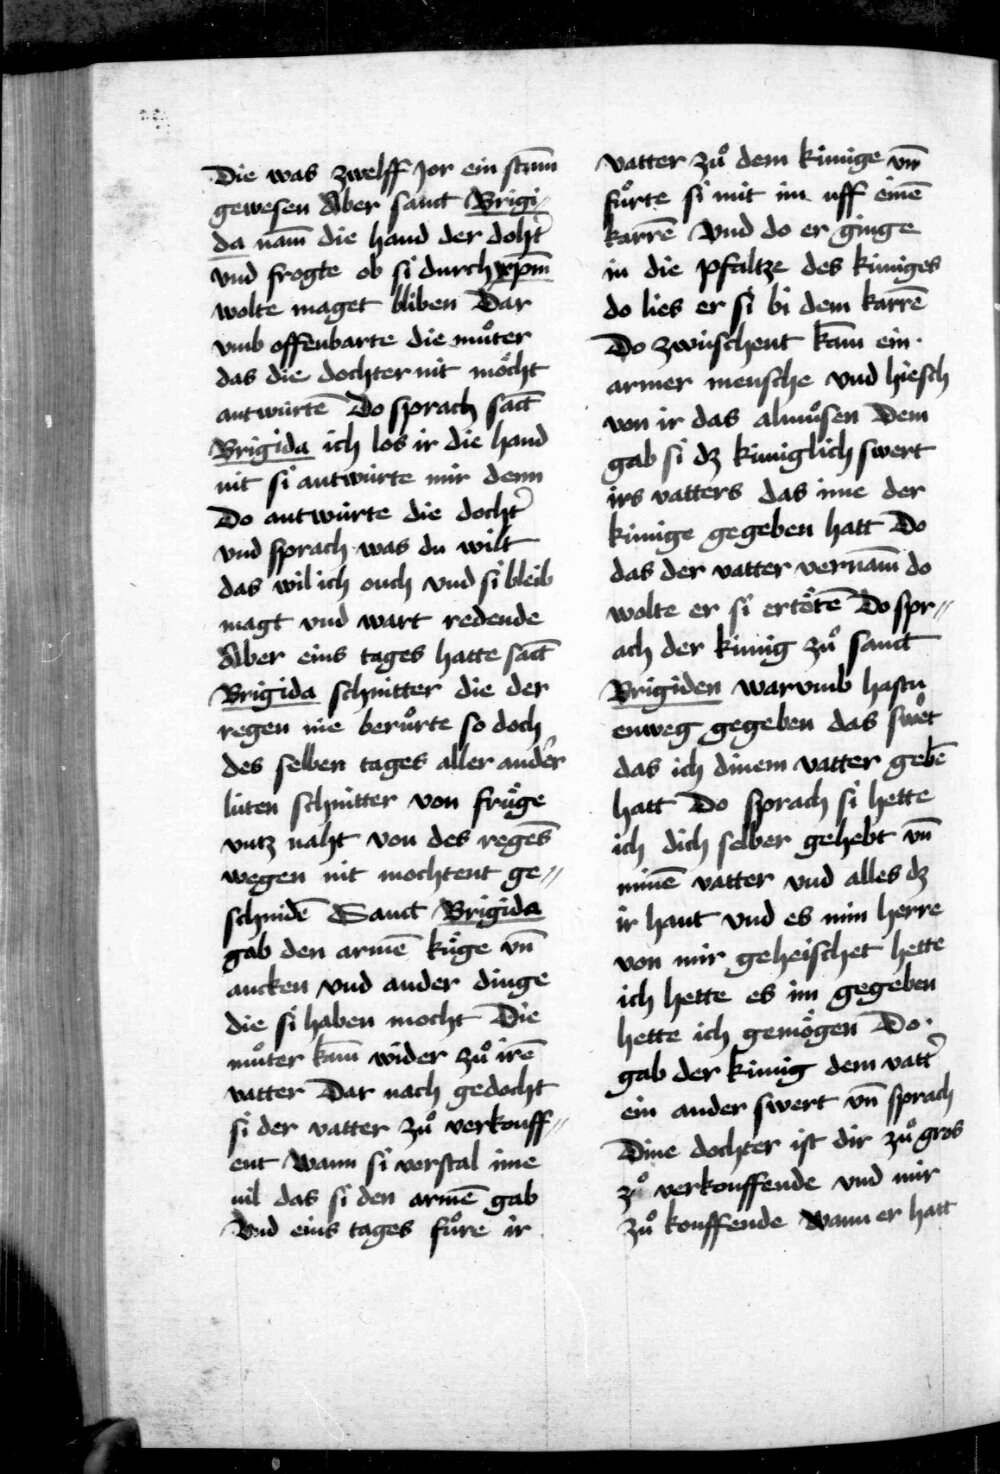 Die was zwelff Jor ein stum̄
gewesen Aber sanct Brigi⸗
da nam̄ die hand der dohtˀ
vnd frogte ob si durch xp̄m
wolte maget bliben Dar
vmb offenbarte die muͦter
das die dochter nit moͤcht
antwürtē Do sprach sāct
Brigida ich los ir die hand
nit si antwürte mir denn
Do antwürte die dochtˀ
vnd sprach was du wilt
das wil ich ouch vnd si bleib
magt vnd wart redende
Aber eins tages hatte sāct
Brigida schnitter die der
regen nie beruͦrte so doch
des selben tages aller andˀer
lüten schnitter von fruͤge
vntz naht von des regēs
wegen nit mochtent ge⸗
schnidē Sanct Brigida
gab den armē kuͤge vn̄
ancken vnd ander dinge
die si haben mocht Die
muͦter kam̄ wider zuͦ irē
vatter Dar nach gedocht
si der vatter zuͦ verkouff⸗
ent Wann si verstal ime
vil das si den armē gab
Vnd eins tages fuͦre ir
vatter zuͦ dem künige vn̄
fuͦrte si mit im uff einē
karrē Vnd do er ginge
in die pfaltze des küniges
do lies er si bi dem karrē
Do zwüschent kam̄ ein
armer mensche vnd hiesch
von ir das almuͦsen Dem
gab si dz küniglich swert
irs vatters das ime der
künige gegeben hatt Do
das der vatter vernam̄ do
wolte er si ertoͤtē Do spr⸗
ach der künig zuͦ sanct
Brigiden warvmb hastu
enweg gegeben das swˀet
das ich dinem vatter gebē
hatt Do sprach si hette
ich dich selber gehebt vn̄
minē vatter vnd alles dz
ir hant vnd es min herre
von mir geheischet hette
ich hette es im gegeben
hette ich gemoͤgen Do
gab der künig dem vattˀ
ein ander swert vn̄ sprach
Dine dochter ist dir zuͦ gros
zuͦ verkouffende vnd mir
zuͦ kouffende Wann er hatt